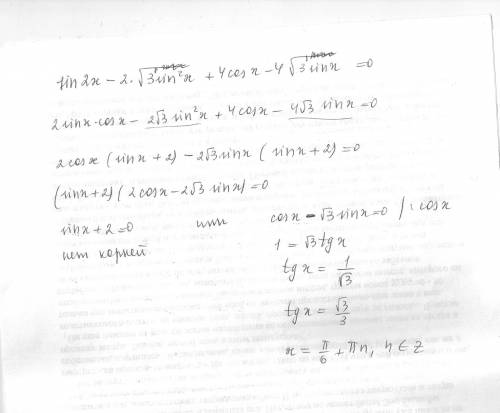 sin2x − 2·√3sin²x + 4cosx − 4√3sinx = 0
2sinx·cosx − 2√3 sin²x + 4cosx − 4√3 sinx = 0
2cosx (sinx + 2) − 2√3sinx (sinx + 2) = 0
(sinx + 2)(2cosx − 2√3 sinx) = 0
sinx + 2 = 0 или cosx − √3sinx = 0 / : cosx
нет корней 1 = √3tgx
tgx = 1/√3
tgx = √3/3
x = π/6 + πn, n ∈ Z